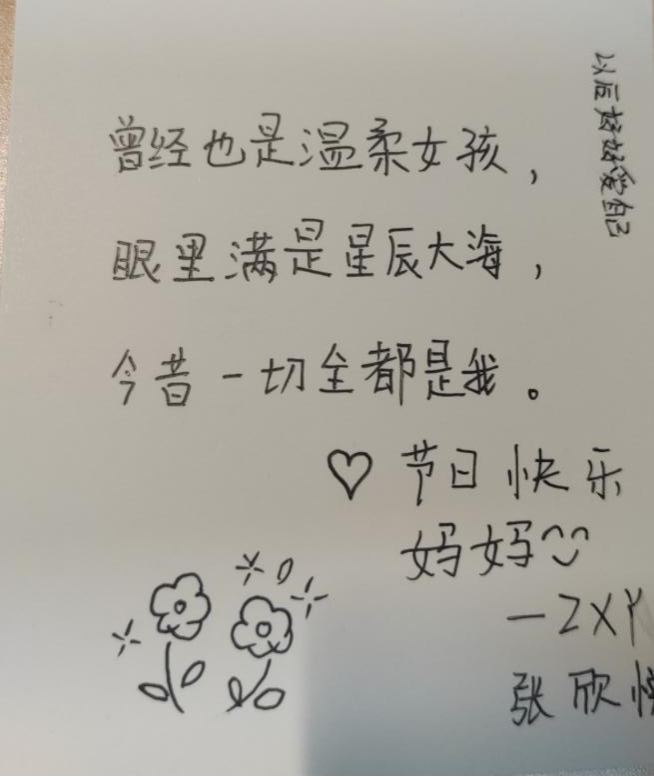 曾经也是温柔女孩，
眼里满是星辰大海，
今昔一切全都是我。
♡ 节日快乐
妈妈
—ZXY
张欣
以后好好爱自己